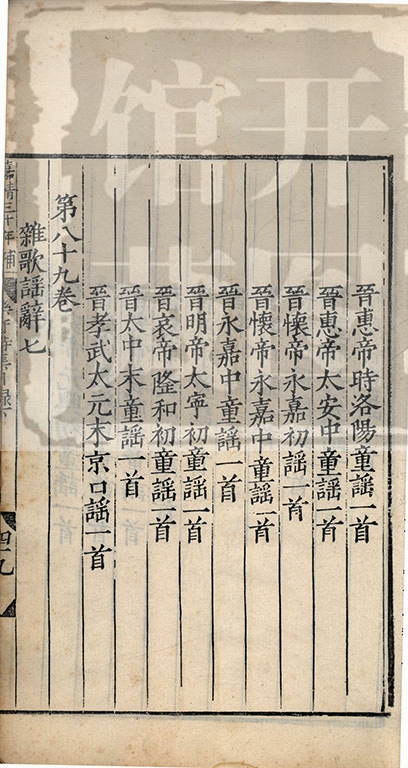 晉惠帝時洛陽童謠一首
晉惠帝太安中童謠一首
晉懷帝永嘉初謠一首
晉懷帝永嘉中童謠一首
晉永嘉中童謠一首
晉明帝太寧初童謠一首
晉哀帝隆和初童謠一首
晉太中末童謠一首
晉孝武太元末京口謠一首
第八十九卷
雜歌謠辭七
嘉靖三十年補
四十九
开
馆